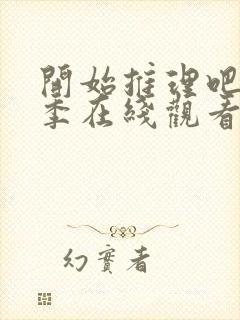 開始推理吧
季在綫觀看
幻實者